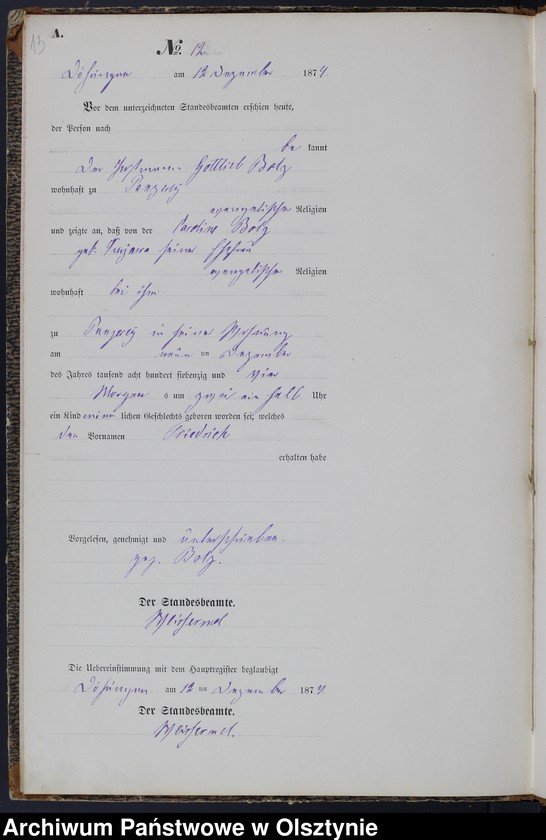 13
A.
No. 12
Döhringen am 12 Dezember 1874
Vor dem unterzeichneten Standesbeamten erschien heute,
der Person nach
be kannt
Der Instmann Gottlieb Bolz
wohnhaft zu
evangelischer Religion
und zeigte an, daß von der Caroline Bolz
geb. seiner Ehefrau
evangelischer Religion
wohnhaft bei ihm
zu in seiner Wohnung
am neun ten Dezember
des Jahres tausend acht hundert siebenzig und vier
Morgen s um zwei ein halb Uhr
ein Kind männ lichen Geschlechts geboren worden sei, welches
den Vornamen Friedrich
erhalten habe
Vorgelesen, genehmigt und unterschrieben.
gez. Bolz.
Der Standesbeamte.
Die Uebereinstimmung mit dem Hauptregister beglaubigt
Döhringen am 12 ten Dezember 1874.
Der Standesbeamte.
Archiwum Państwowe w Olsztynie